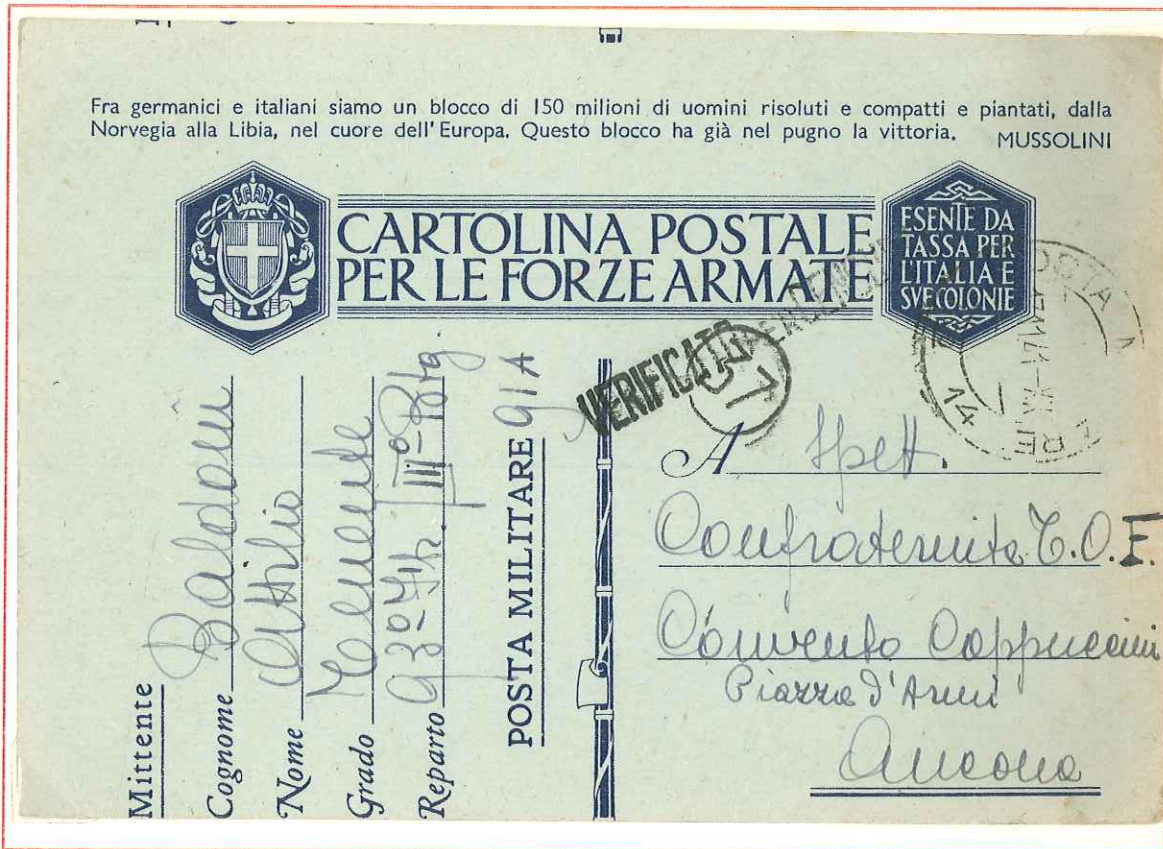 Fra germanici e italiani siamo un blocco di 150 milioni di uomini risoluti e compatti e piantati, dalla
Norvegia alla Libia, nel cuore dell'Europa. Questo blocco ha già nel pugno la vittoria.
MUSSOLINI
CARTOLINA POSTALE
PER LE FORZE ARMATE
ESENTE DA
TASSA PER
L'ITALIA E
SVE COLONIE
VERIFICATO PER CENSURA
POSTA MILITARE
14
Mittente
Cognome Baldoni
Nome Attilio
Grado Tenente
Reparto 93° Ftr. III° Btg.
POSTA MILITARE 91A
A Spett.
Confraternita T.O.F.
Convento Cappuccini
Piazza d'Armi
Ancona